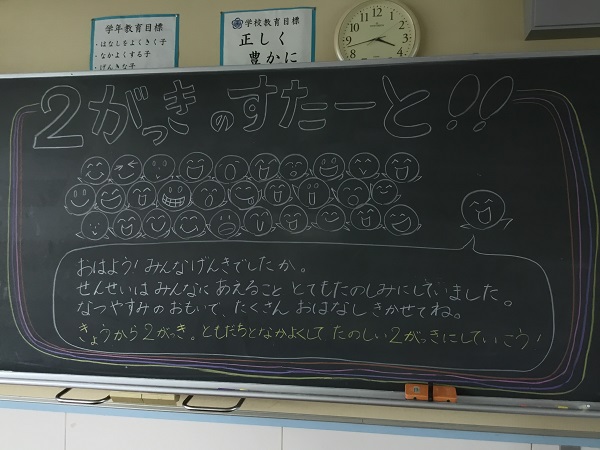 学年教育目標
・はなしをよくきく子
・なかよくする子
・げんきな子
学校教育目標
正しく
豊かに
2がっきのすたーと!!
おはよう!みんなげんきでしたか。
せんせいはみんなにあえること とてもたのしみにしていました。
なつやすみのおもいで、たくさん おはなし きかせてね。
きょうから2がっき。ともだちとなかよくして たのしい2がっきにしていこう!